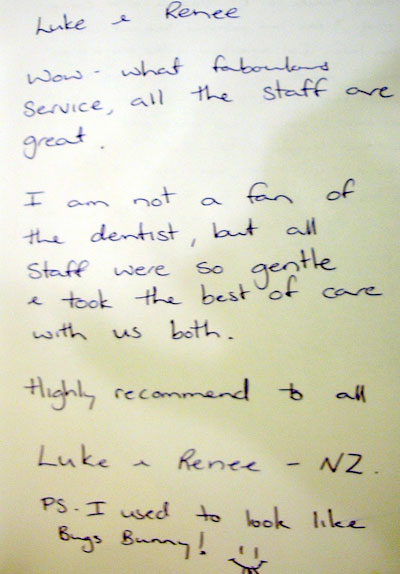 Luke & Renee
Wow - what faboulous
service, all the staff are
great.
I am not a fan of
the dentist, but all
staff were so gentle
& took the best of care
with us both.
Highly recommend to all
Luke & Renee - NZ.
PS. I used to look like
Bugs Bunny!